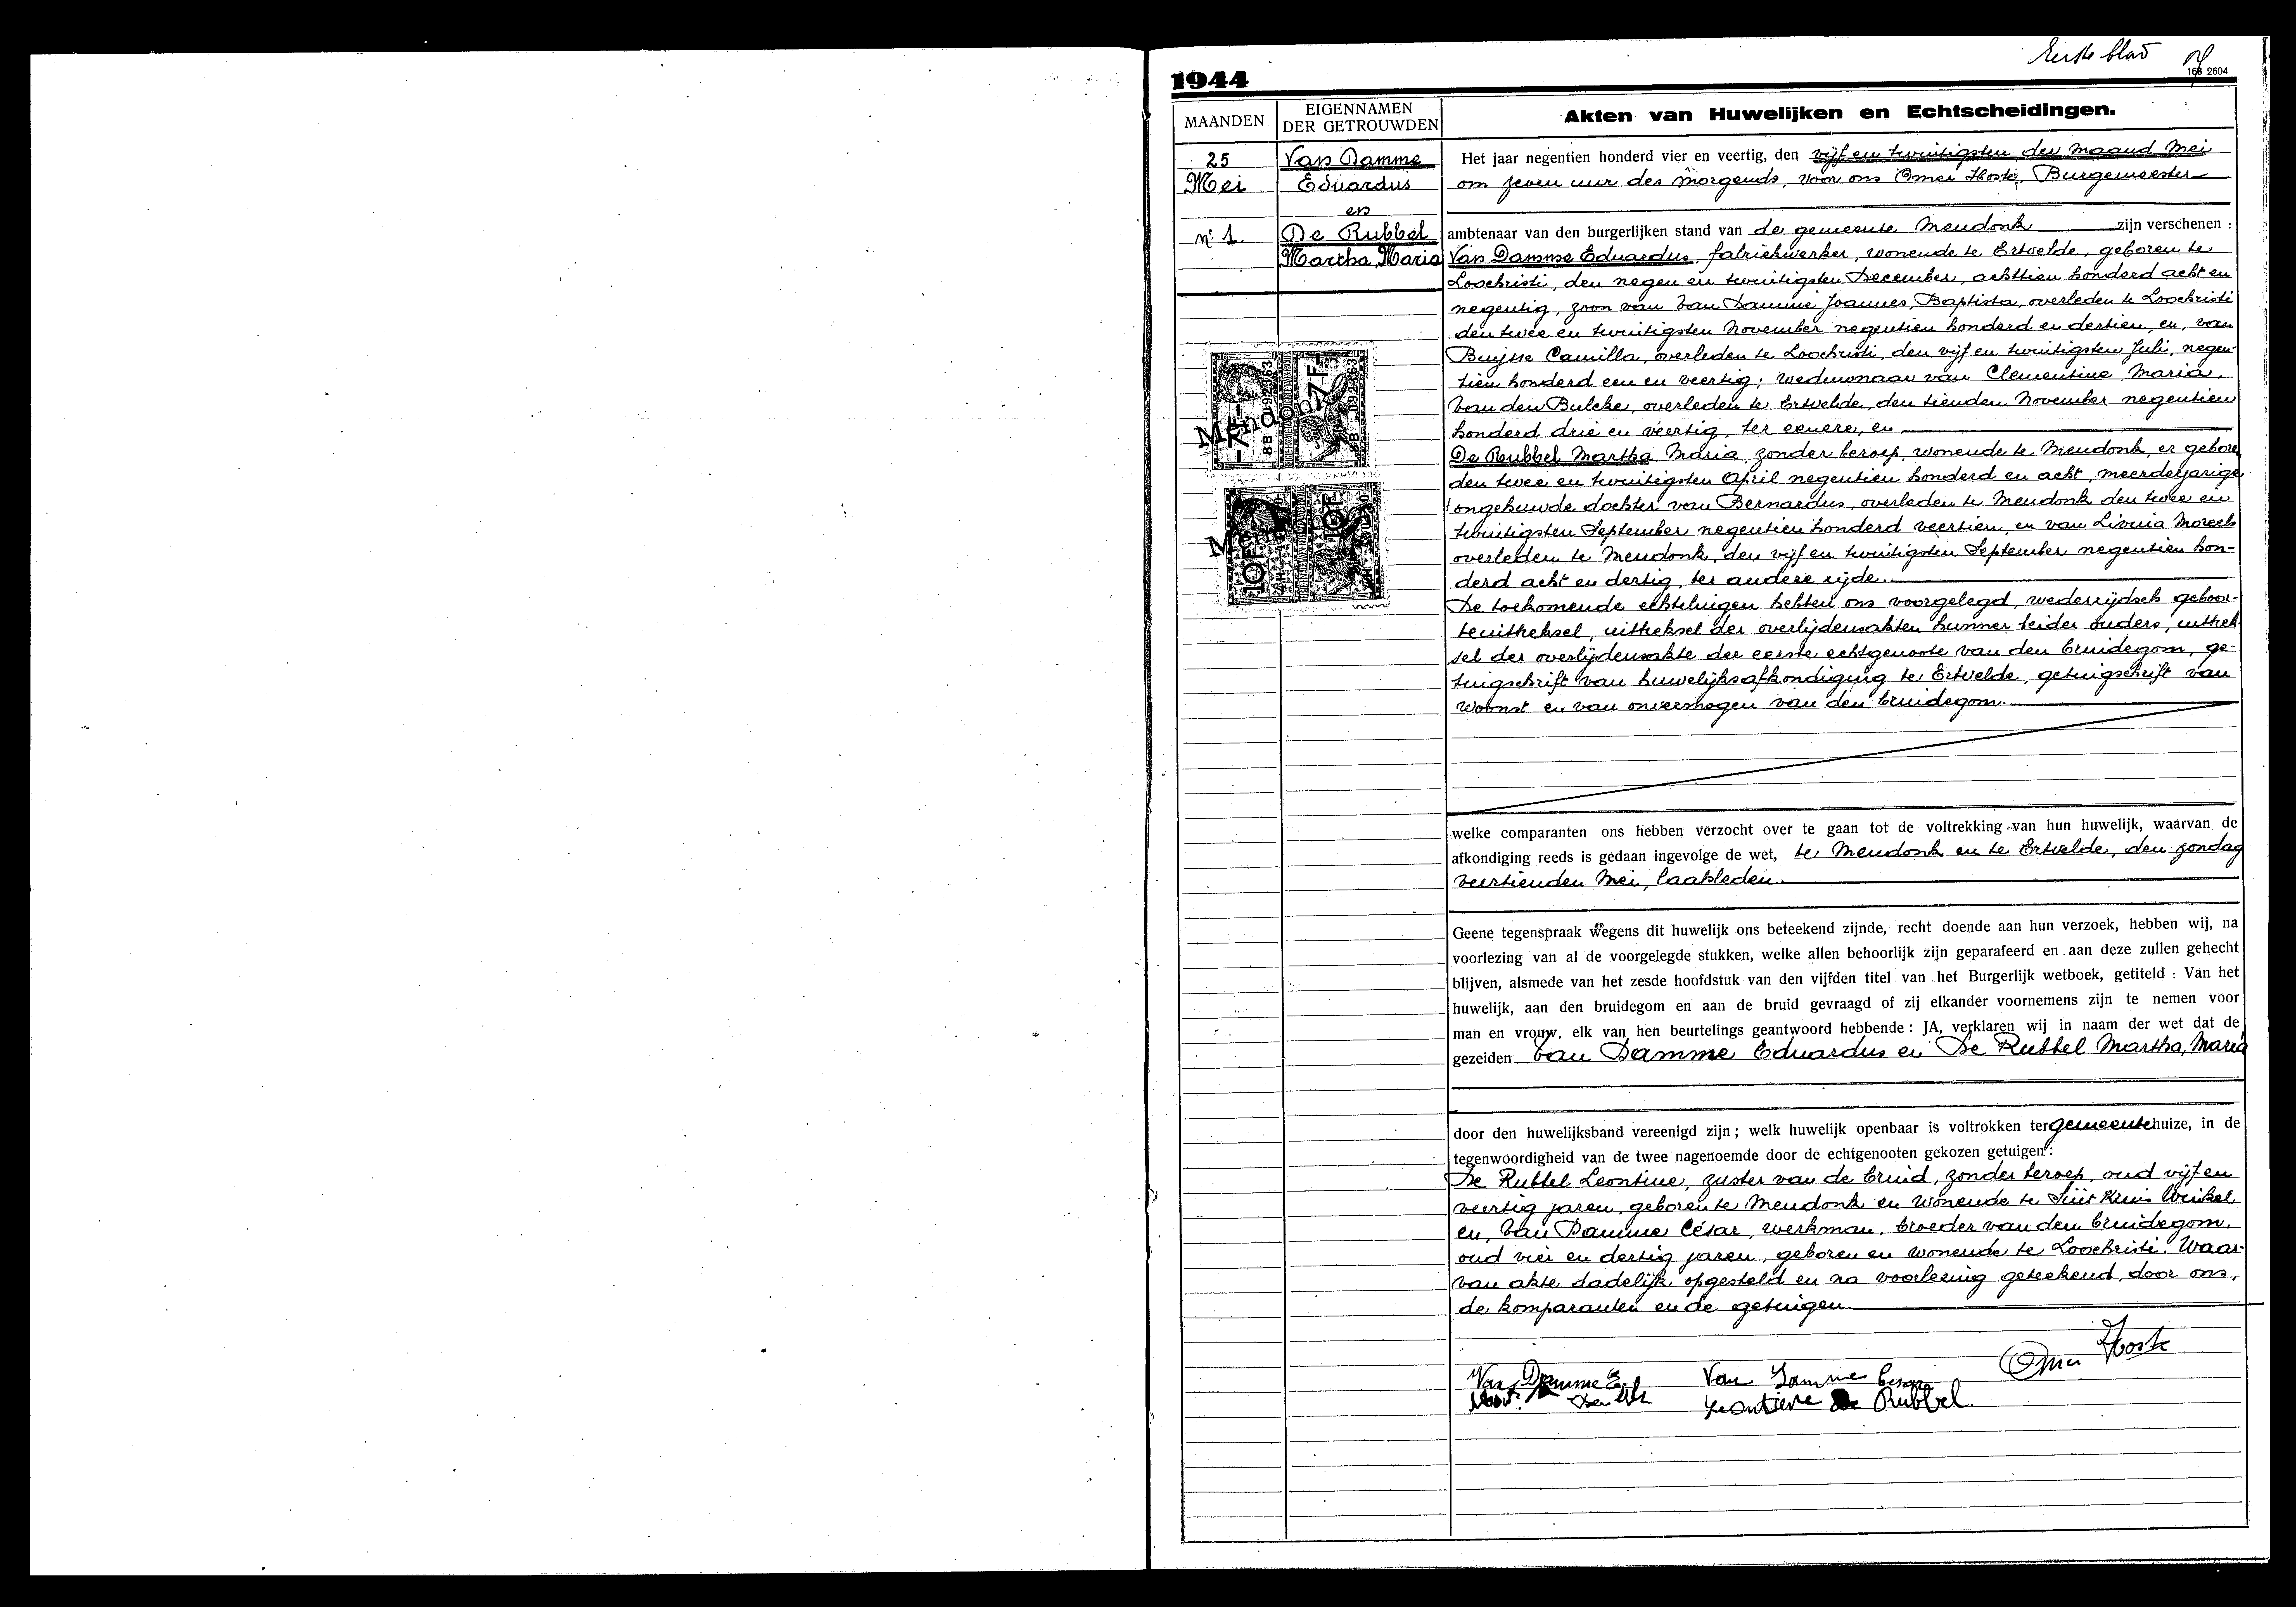 Eerste blad
168 2604
1944
MAANDEN
EIGENNAMEN
DER GETROUWDEN
Akten van Huwelijken en Echtscheidingen.
25
Mei
n.º 1.
Van Damme
Eduardus
en
De Rubbel
Martha, Maria
Mendonk
8B 092363
7 F.
8B 092363
Mendonk
10F
10F
Het jaar negentien honderd vier en veertig, den vijf en twintigsten der maand Mei
om zeven uur des morgends, voor ons Omer Hoste, Burgemeester
ambtenaar van den burgerlijken stand van de gemeente Mendonk zijn verschenen :
Van Damme Eduardus, fabriekwerker, wonende te Ertvelde, geboren te
Loochristi, den negen en twintigsten December, achttien honderd acht en
negentig, zoon van Van Damme Joannes, Baptista, overleden te Loochristi
den twee en twintigsten November negentien honderd en dertien, en, van
Buijsse Camilla, overleden te Loochristi, den vijf en twintigsten Juli, negen-
tien honderd een en veertig; weduwnaar van Clementine, Maria,
Van den Bulcke, overleden te Ertvelde, den tienden November negentien
honderd drie en veertig, ter eenere, en,
De Rubbel Martha, Maria, zonder beroep, wonende te Mendonk, er geboren
den twee en twintigsten April negentien honderd en acht, meerderjarige
ongehuwde dochter van Bernardus, overleden te Mendonk den twee en
twintigsten September negentien honderd veertien, en van Livina Moreels
overleden te Mendonk, den vijf en twintigsten September negentien hon-
derd acht en dertig, ter andere zijde.
De toekomende echtelingen hebben ons voorgelegd, wederzijdsch geboor-
teuittreksel, uittreksel der overlijdensakten hunner beider ouders, uittrek-
sel der overlijdensakte der eerste echtgenoote van den bruidegom, ge-
tuigschrift van huwelijksafkondiging te Ertvelde, getuigschrift van
woonst en van onvermogen van den bruidegom.
welke comparanten ons hebben verzocht over te gaan tot de voltrekking van hun huwelijk, waarvan de
afkondiging reeds is gedaan ingevolge de wet, te Mendonk en te Ertvelde, den zondag
veertienden Mei, laatsleden.
Geene tegenspraak wegens dit huwelijk ons beteekend zijnde, recht doende aan hun verzoek, hebben wij, na
voorlezing van al de voorgelegde stukken, welke allen behoorlijk zijn geparafeerd en aan deze zullen gehecht
blijven, alsmede van het zesde hoofdstuk van den vijfden titel van het Burgerlijk wetboek, getiteld : Van het
huwelijk, aan den bruidegom en aan de bruid gevraagd of zij elkander voornemens zijn te nemen voor
man en vrouw, elk van hen beurtelings geantwoord hebbende : JA, verklaren wij in naam der wet dat de
gezeiden Van Damme Eduardus en De Rubbel Martha, Maria
door den huwelijksband vereenigd zijn ; welk huwelijk openbaar is voltrokken ter gemeentehuize, in de
tegenwoordigheid van de twee nagenoemde door de echtgenooten gekozen getuigen :
De Rubbel Leontine, zuster van de bruid, zonder beroep, oud vijf en
veertig jaren, geboren te Mendonk en wonende te Sint Kruis Winkel
en, Van Damme César, werkman, broeder van den bruidegom,
oud vier en dertig jaren, geboren en wonende te Loochristi. Waar-
van akte dadelijk opgesteld en na voorlezing geteekend, door ons,
de komparanten en de getuigen.
Omer Hoste
Van Damme E. Van Damme Cesar
Leontiene De Rubbel.